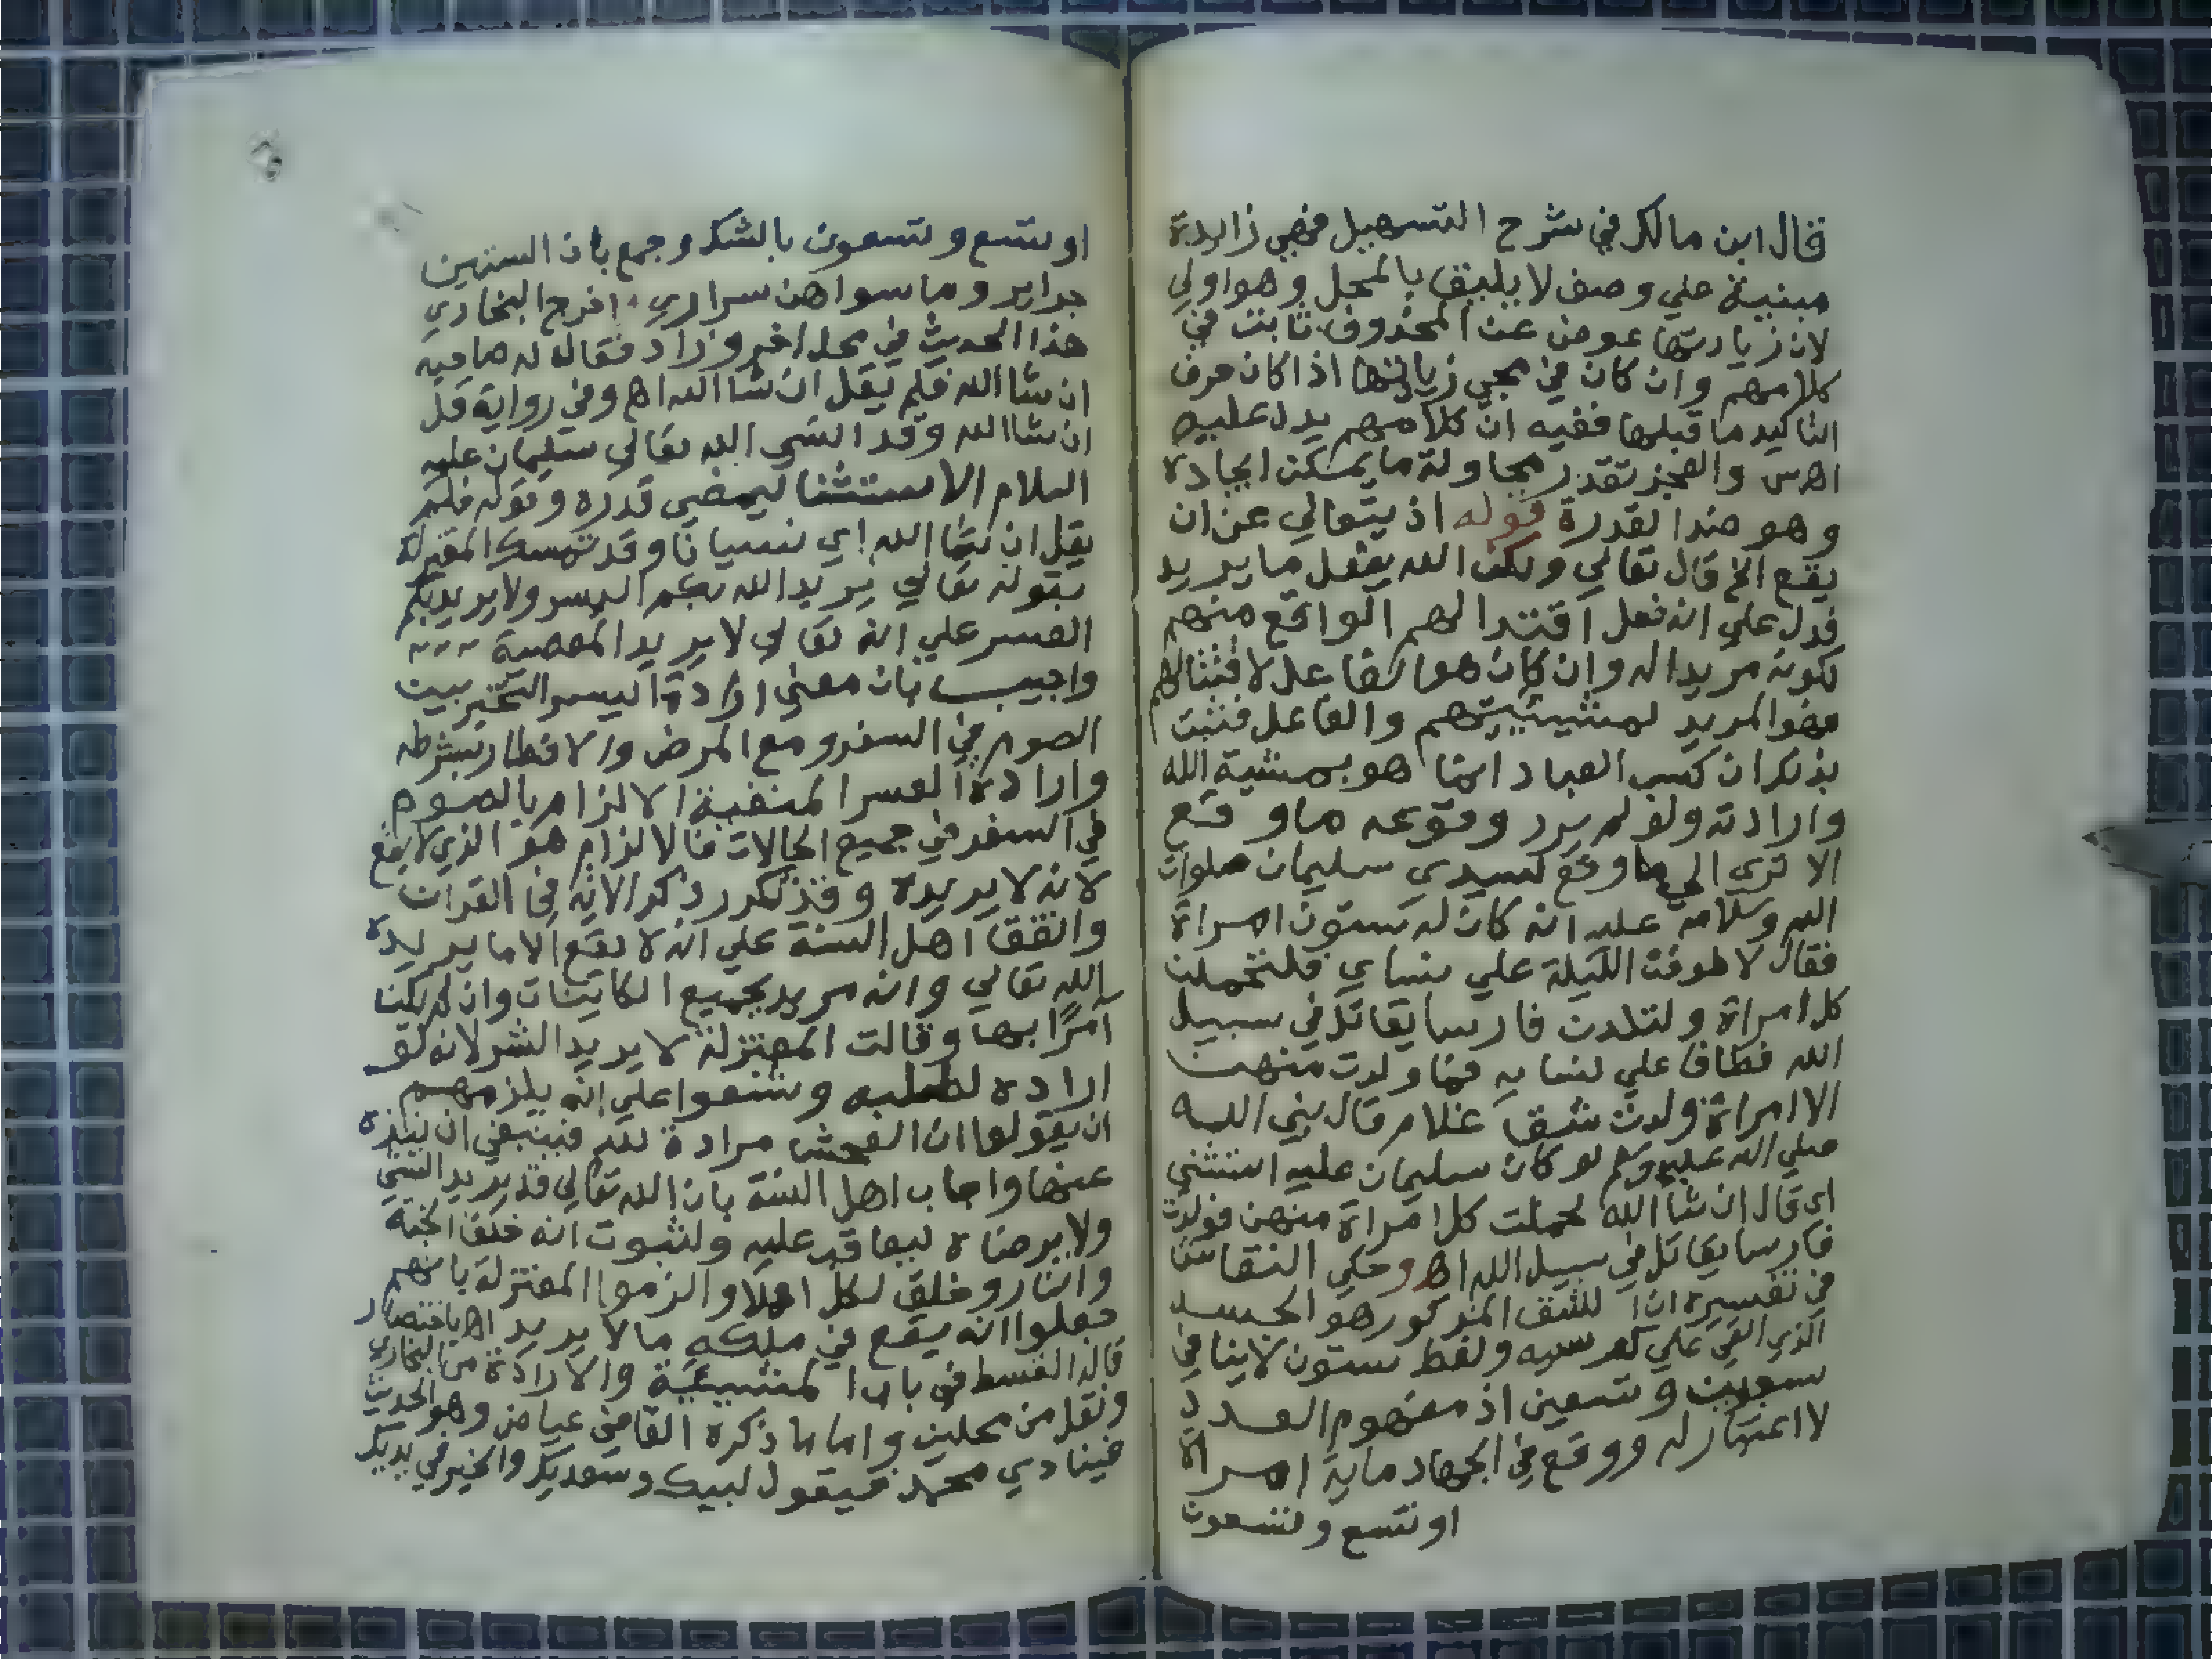 قال ابن مالك في شرح التسهيل فهي زايدة
مبنية علي وصف لا يليق بالمحل وهو اولي
لان زيادتها عوض عن المحذوف ثابت في
كلامهم وان كان في مجي زيادتها اذا كان حرف
التاكيد ما قبلها ففيه ان كلامهم يدل عليه
اهس والعجز تقدر محاولة ما يمكن ايجاده
وهو ضد القدرة قوله اذ يتعالي عن ان
يقع الخ قال تعالي ولكن الله يفعل ما يريد
فدل علي انه فعل اقتتالهم الواقع منهم
لكونه مريدا له وان كان هو الفاعل لاقتتالهم
فهو المريد لمشيئتهم والفاعل فثبت
بذلك ان كسب العباد انما هو بمشية الله
وارادته ولو لم يرد وقوعه ما وقع
الا تري الي ما وقع لسيدي سليمان صلوات
الله وسلامه عليه انه كان له ستون امراة
فقال لاطوفن الليلة علي نساي فلتحملن
كل امراة ولتلدن فارسا يقاتل في سبيل
الله فطاف علي نسايه فما ولدت منهن
الا امراة ولدت شق غلام قال نبي الله
صلي الله عليه وسلم لو كان سليمان عليه استثني
اي قال ان شا الله لحملت كل امراة منهن فولدت
فارسا يقاتل في سبيل الله اهـ وحكي النقاش
في تفسيره ان الشق المذكور هو الجسد
الذي القي علي كرسيه ولفظ ستون لا ينافي
سبعين وتسعين اذ مفهوم العدد
لا اعتبار له ووقع في الجهاد ماية امراة
او تسع وتسعون
او تسع وتسعون بالشك وجمع بان الستين
حراير وما سواهن سراري اخرج البخاري
هذا الحديث في محل اخر وزاد فقال له صاحبه
ان شا الله فلم يقل ان شا الله اهـ وفي رواية قل
ان شا الله وقد انسي الله تعالي سليمان عليه
السلام الاستثنا ليمضي قدره وقوله فلم
يقل ان شا الله اي نسيانا وقد تمسك المعتزلة
بقوله تعالي يريد الله بكم اليسر ولا يريد بكم
العسر علي انه تعالي لا يريد المعصية
واجيب بان معني ارادة اليسر التخير بين
الصوم في السفر ومع المرض والافطار بشرطه
وارادة العسر المنفية الالزام بالصوم
في السفر في جميع الحالات فالالزام هو الذي لا يقع
لانه لا يريده وقد تكرر ذكر الارادة في القران
واتفق اهل السنة علي انه لا يقع الا ما يريده
الله تعالي وانه مريد لجميع الكاينات وان لم يكن
آمرًا بها وقالت المعتزلة لا يريد الشر لانه لو
اراده لطلبه وشنعوا علي انه يلزمهم
ان يقولوا ان الفحش مرادة لله فينبغي ان ينزه
عنها واجاب اهل السنة بان الله تعالي قد يريد الشي
ولا يرضاه ليعاقب عليه ولثبوت انه خلق الجنة
والنار وخلق لكل اهلا والزموا المعتزلة بانهم
جعلوا انه يقع في ملكه ما لا يريد اهـ باختصار
قاله القسط في باب المشيئة والارادة من البخاري
ونقل من محلين واما ما ذكره القاضي عياض وهو الحديث
فينادي محمد فيقول لبيك وسعديك والخير في يديك